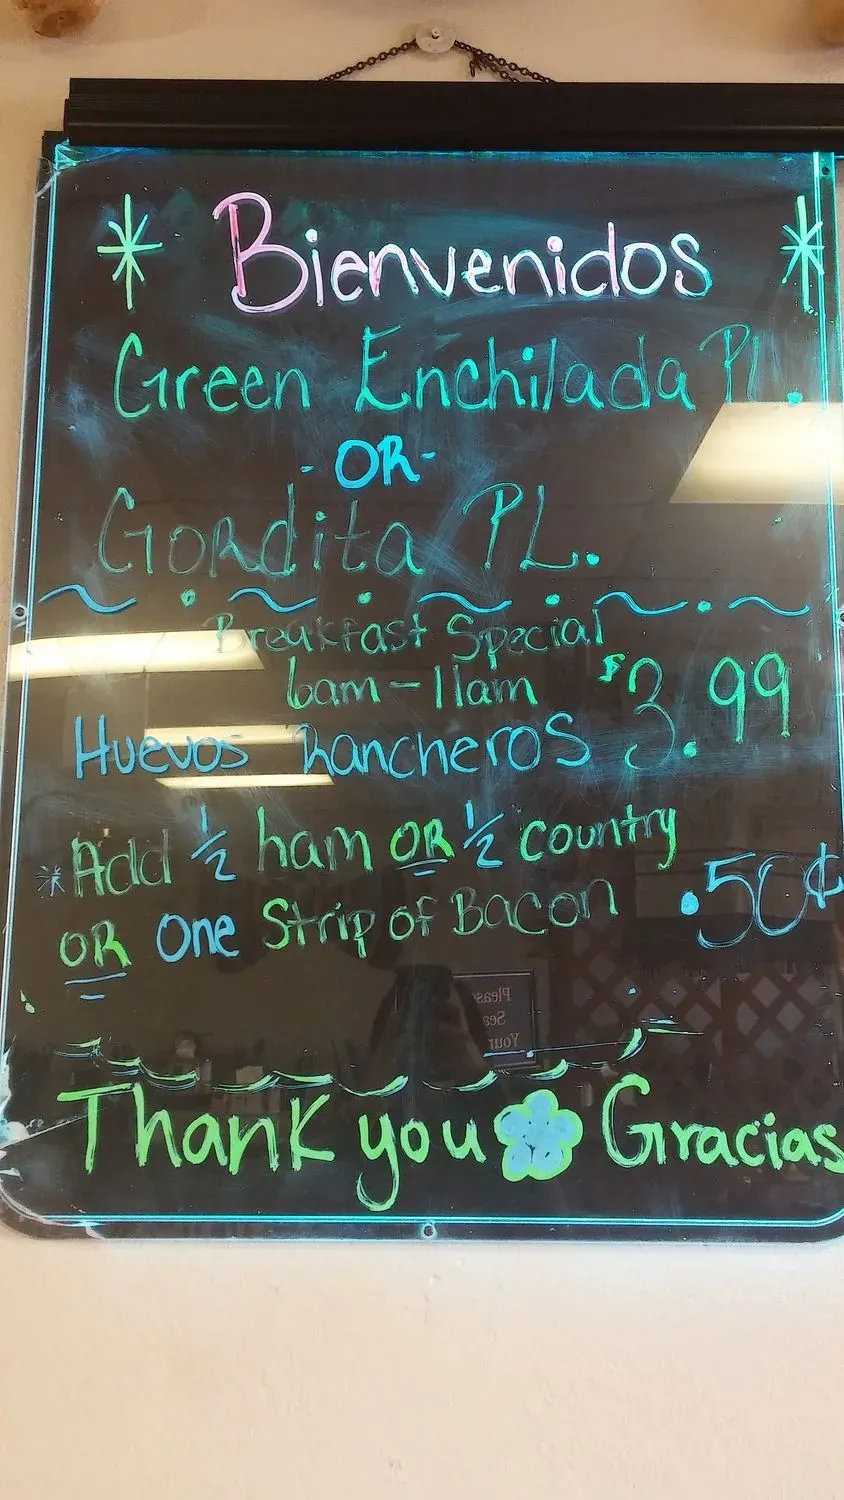 * Bienvenidos *
Green Enchilada Pl.
- OR -
Gordita PL.
Breakfast Special
6am - 11am $3.99
Huevos Rancheros
* Add 1/2 ham OR 1/2 country
OR One Strip of Bacon .50¢
Please
Sea
Your
Thank you Gracias